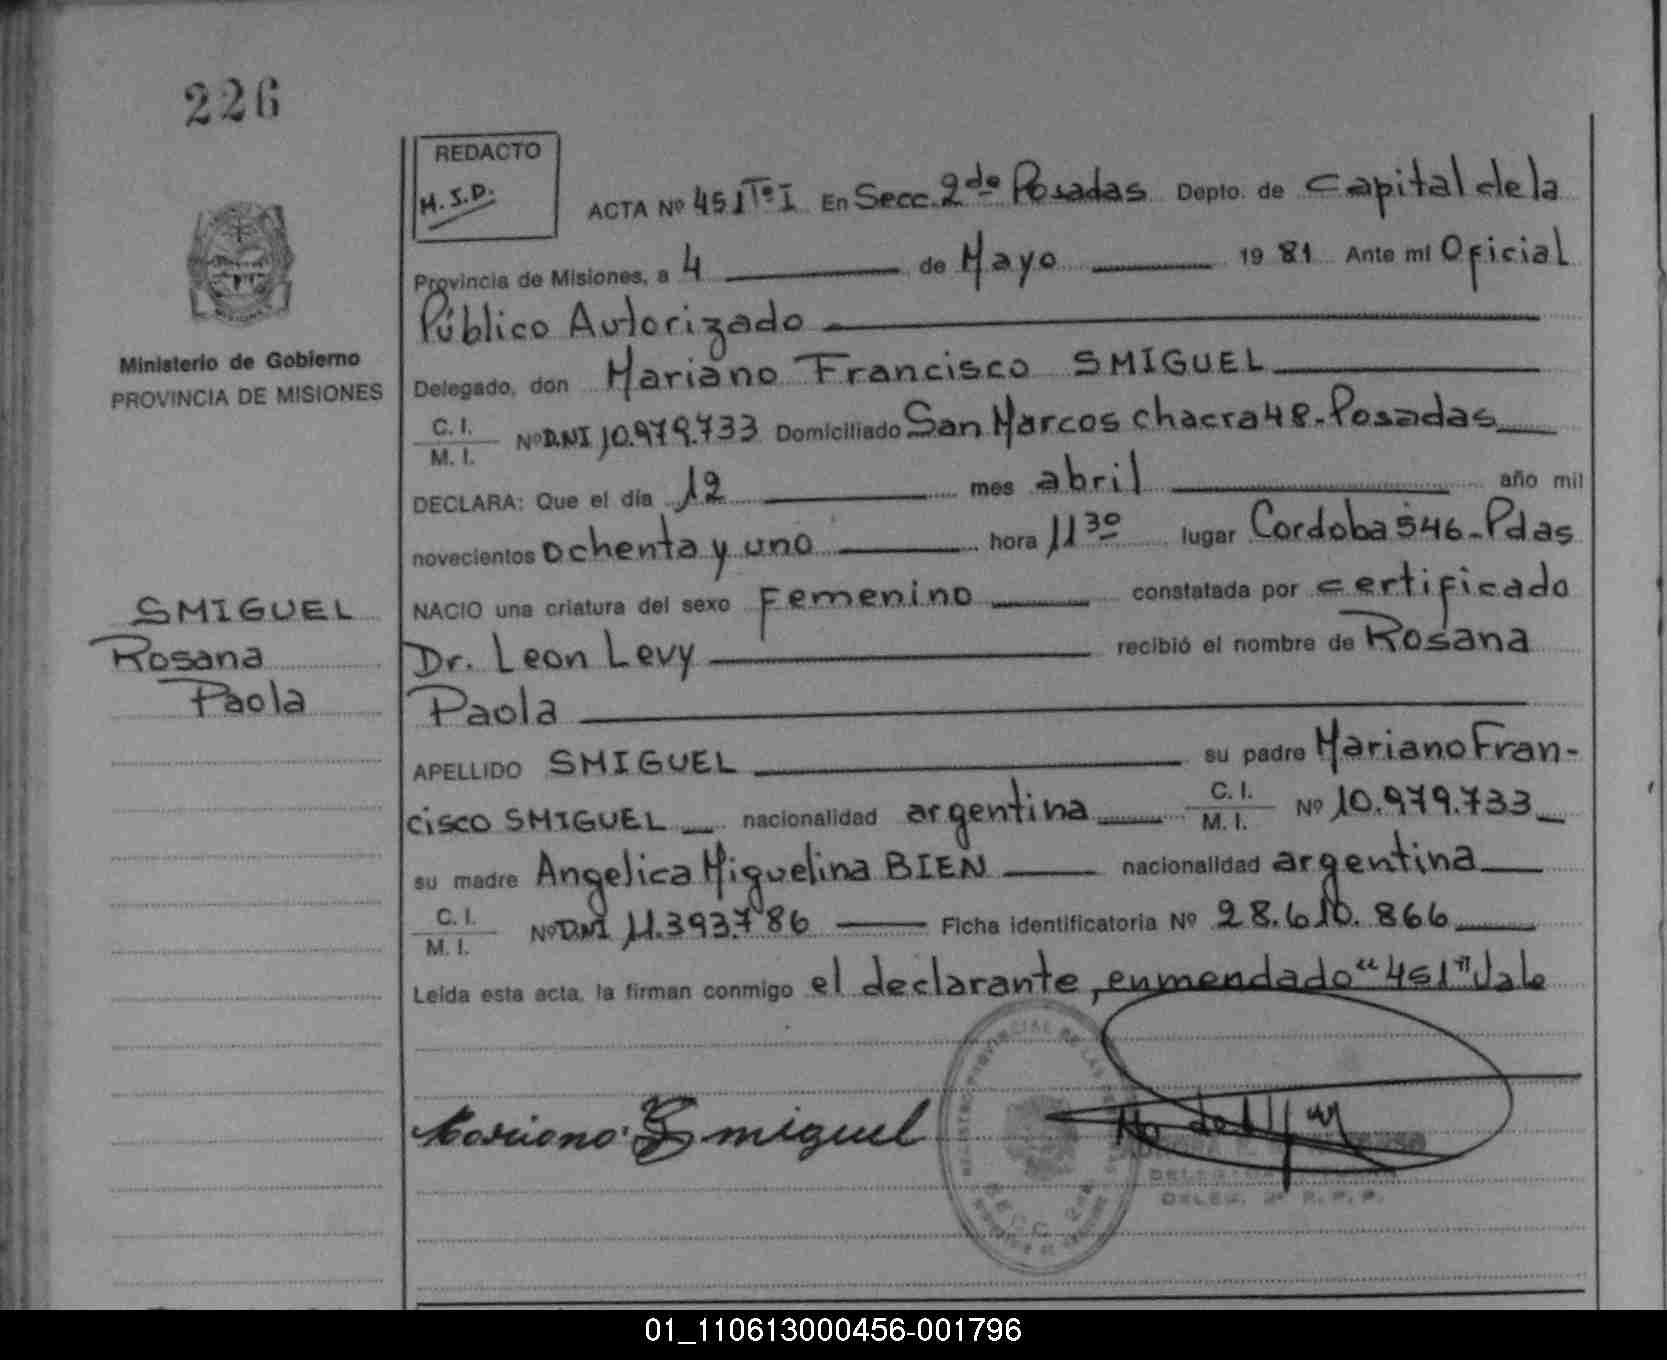 226
REDACTO
M.S.D.
ACTA Nº 451 Tº I En Secc. 2da Posadas Depto. de Capital de la
Provincia de Misiones, a 4 de Mayo 1981 Ante mi Oficial
Público Autorizado
Ministerio de Gobierno
PROVINCIA DE MISIONES
Delegado, don Mariano Francisco SMIGUEL
C. I.
M. I. Nº D.N.I 10.979.733 Domiciliado San Marcos chacra 48.- Posadas
DECLARA: Que el día 12 mes abril año mil
novecientos ochenta y uno hora 11 30 lugar Cordoba 546.- Pdas
NACIO una criatura del sexo femenino constatada por certificado
SMIGUEL
Rosana
Paola
Dr. Leon Levy recibió el nombre de Rosana
Paola
APELLIDO SMIGUEL su padre Mariano Fran-
cisco SMIGUEL nacionalidad argentina C. I. M. I. Nº 10.979.733
su madre Angelica Miguelina BIEN nacionalidad argentina
C. I.
M. I. Nº D.N.I 11.393.786 Ficha identificatoria Nº 28.610.866
Leída esta acta, la firman conmigo el declarante, enmendado "451" Vale
Mariano Smiguel
SECC. 2da
DELEG. 2ª R.P.P.
01_110613000456-001796